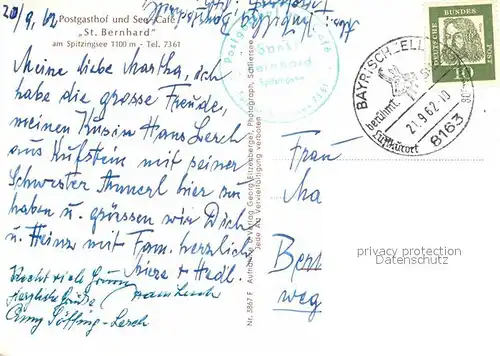 20/9. 62
Postgasthof und See-Café
„St. Bernhard"
am Spitzingsee 1100 m - Tel. 7361
Meine liebe Martha, ich
habe die grosse Freude,
meinen Kusin Hans Lerch
aus Kufstein mit seiner
Schwester Annerl hier zu
haben u. grüssen wir Dich
u. Heinz mit Fam. herzlich
Recht viele
Herzliche Grüße
Söffing-Lerch
Nr. 3867 F Aufnahme u. Verlag Georg Eitzenberger, Photograph, Schliersee
Jede Art Vervielfältigung verboten
Spitzingsee
7361
DEUTSCHE BUNDESPOST
10
BAYRISCHZELL
berühmt.
Luftkurort
21.9.62.10
8163
Frau
Ma
Bern
weg
privacy protection
Datenschutz